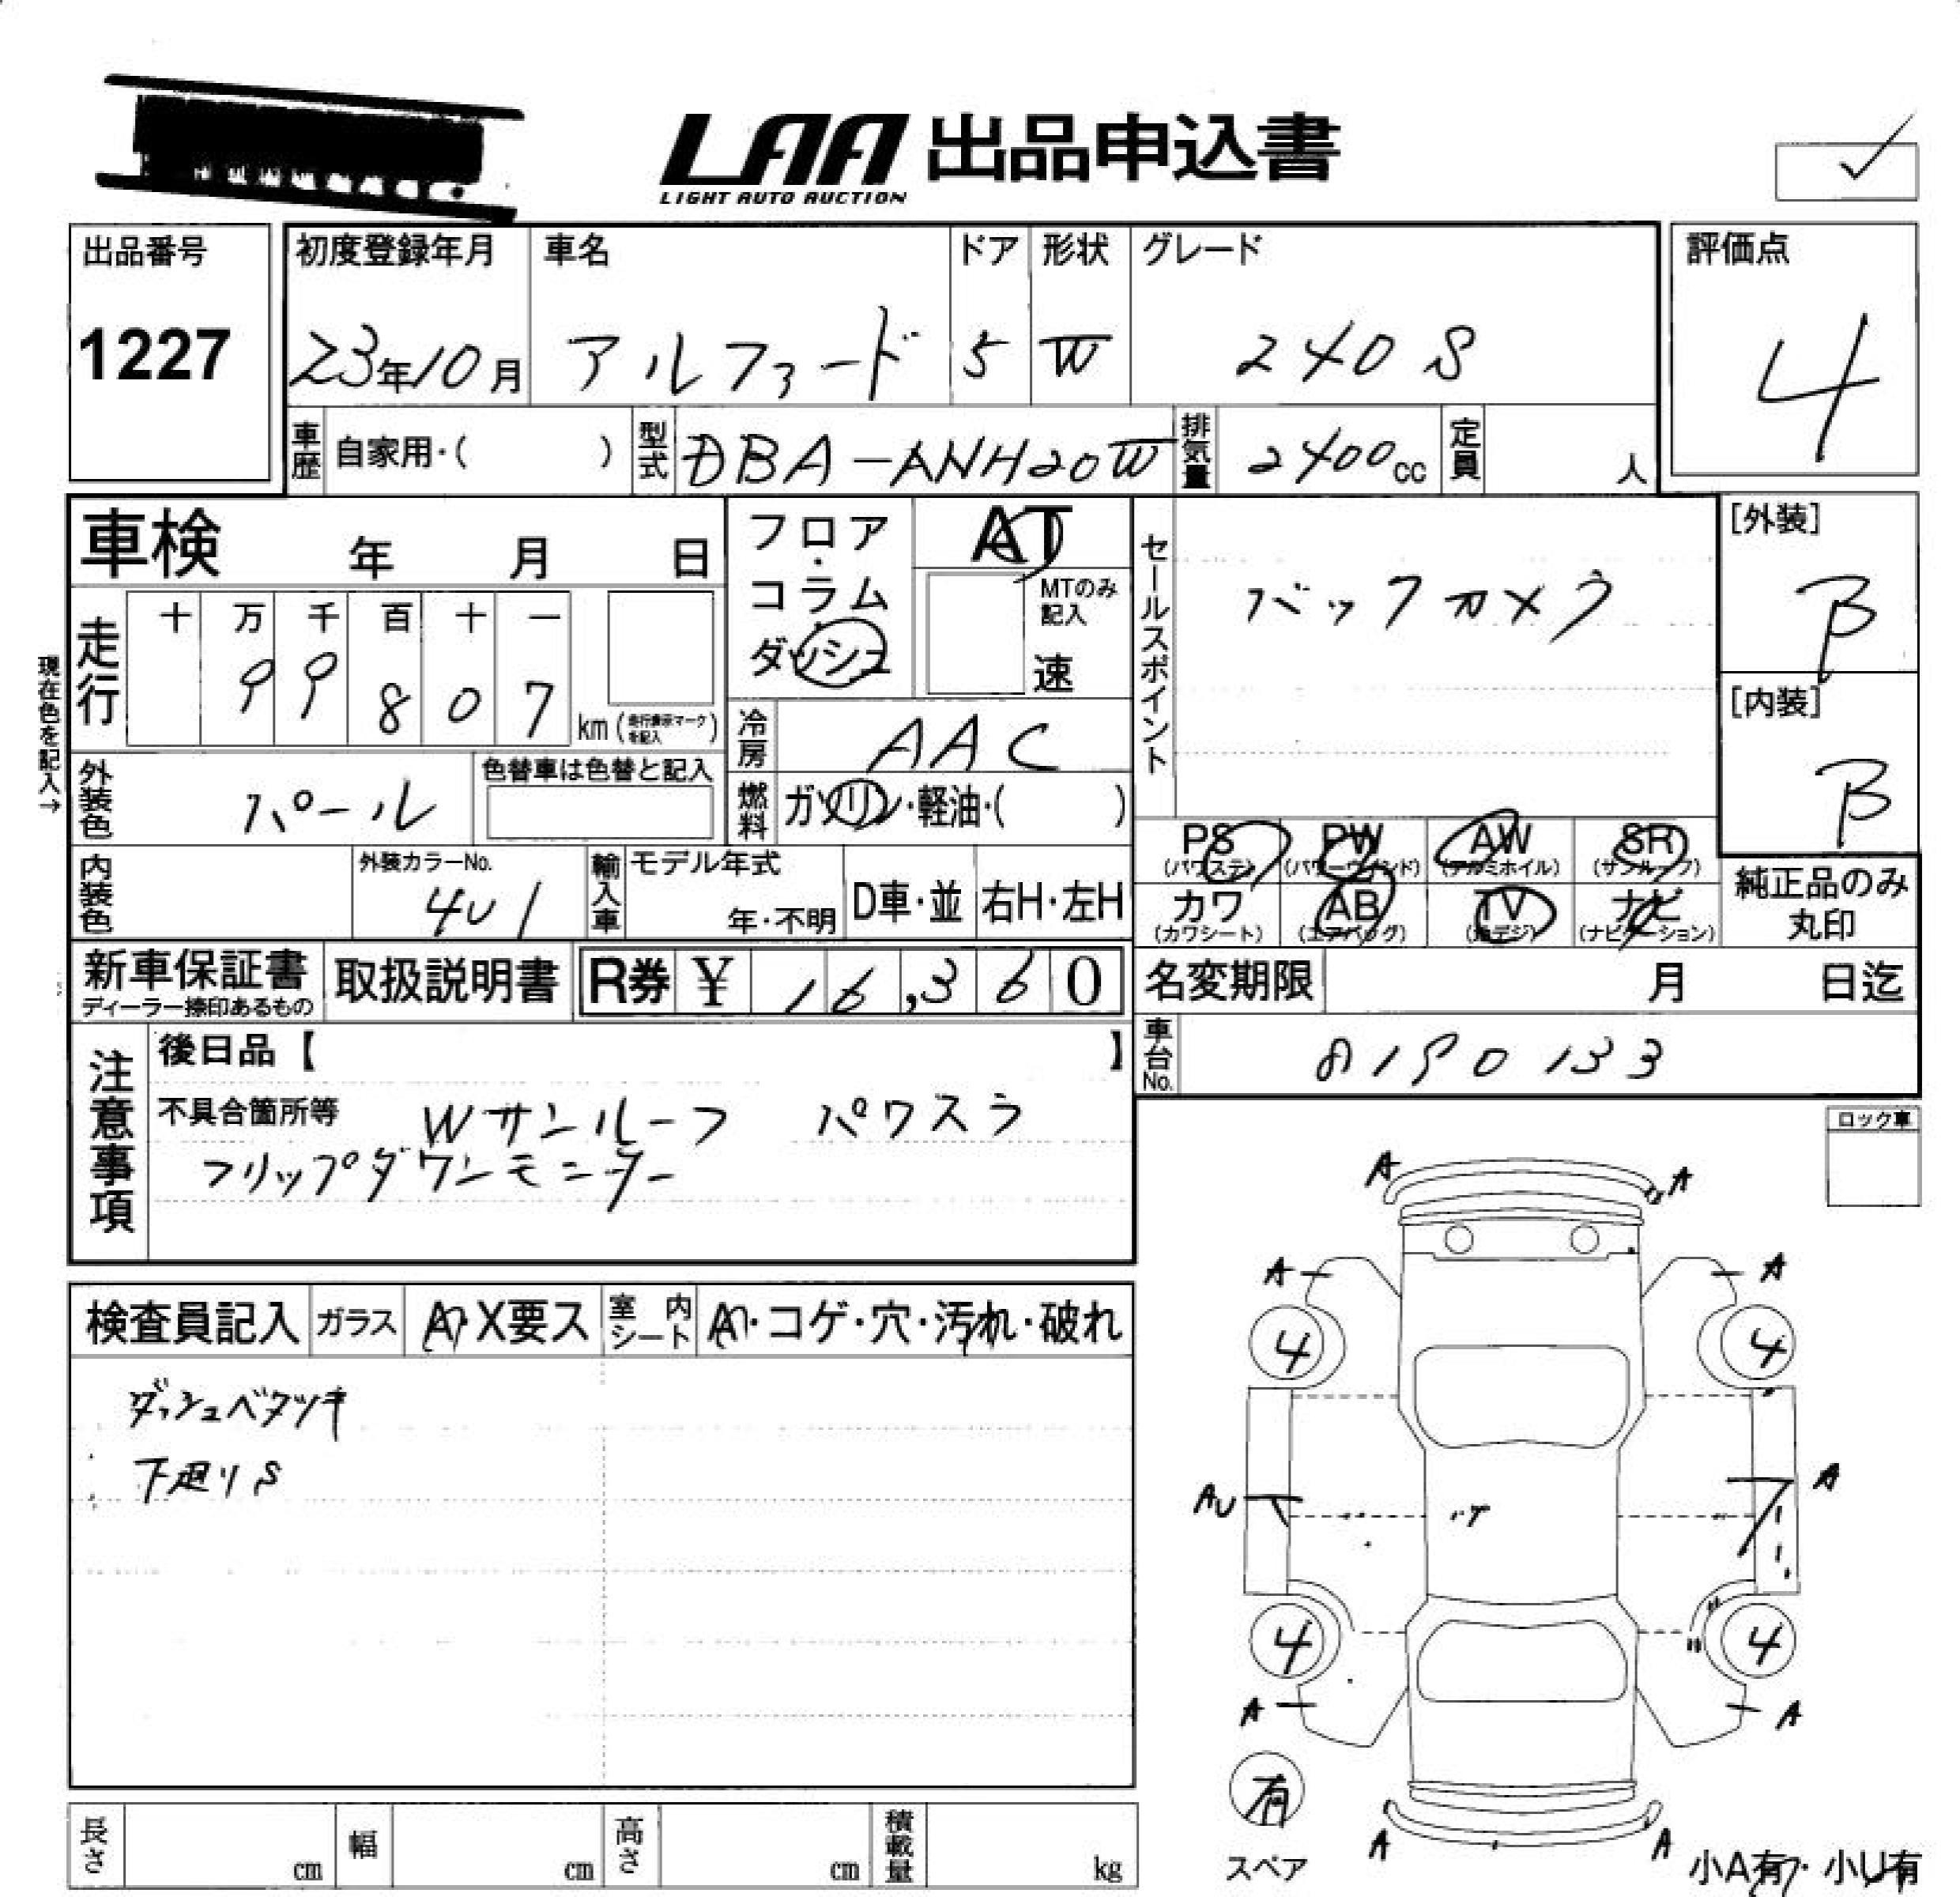 LAA 出品申込書
LIGHT AUTO AUCTION
出品番号
1227
初度登録年月
23年10月
車名
アルファード
ドア
5
形状
W
グレード
240S
評価点
4
車歴 自家用・( )
型式 DBA-ANH20W
排気量 2400cc
定員 人
車検 年 月 日
フロア・コラム・ダッシュ
AT
MTのみ記入
速
セールスポイント
バックカメラ
[外装]
B
[内装]
B
現在色を記入→
走行 十 万 千 百 十 一
99807 km (走行表示マークを記入)
冷房 AAC
燃料 ガソリン・軽油・( )
外装色 パール
色替車は色替と記入
内装色
外装カラーNo.
4U1
輸入車 モデル年式
年・不明
D車・並
右H・左H
PS (パワステ)
PW (パワーウインド)
AW (アルミホイル)
SR (サンルーフ)
カワ (カワシート)
AB (エアバッグ)
TV (地デジ)
ナビ (ナビゲーション)
純正品のみ
丸印
新車保証書
ディーラー捺印あるもの
取扱説明書
R券 ¥ 16,360
名変期限 月 日迄
車台No. 8190133
注意事項
後日品【 】
不具合箇所等 Wサンルーフ パワスラ
フリップダウンモニター
ロック車
検査員記入
ガラス A・X要ス
室内シート A・コゲ・穴・汚れ・破れ
ダッシュベタツキ
下廻りS
A A
A A
4 4
AU A
4 4
A A
有
スペア
A A
小A有・小U有
長さ cm
幅 cm
高さ cm
積載量 kg